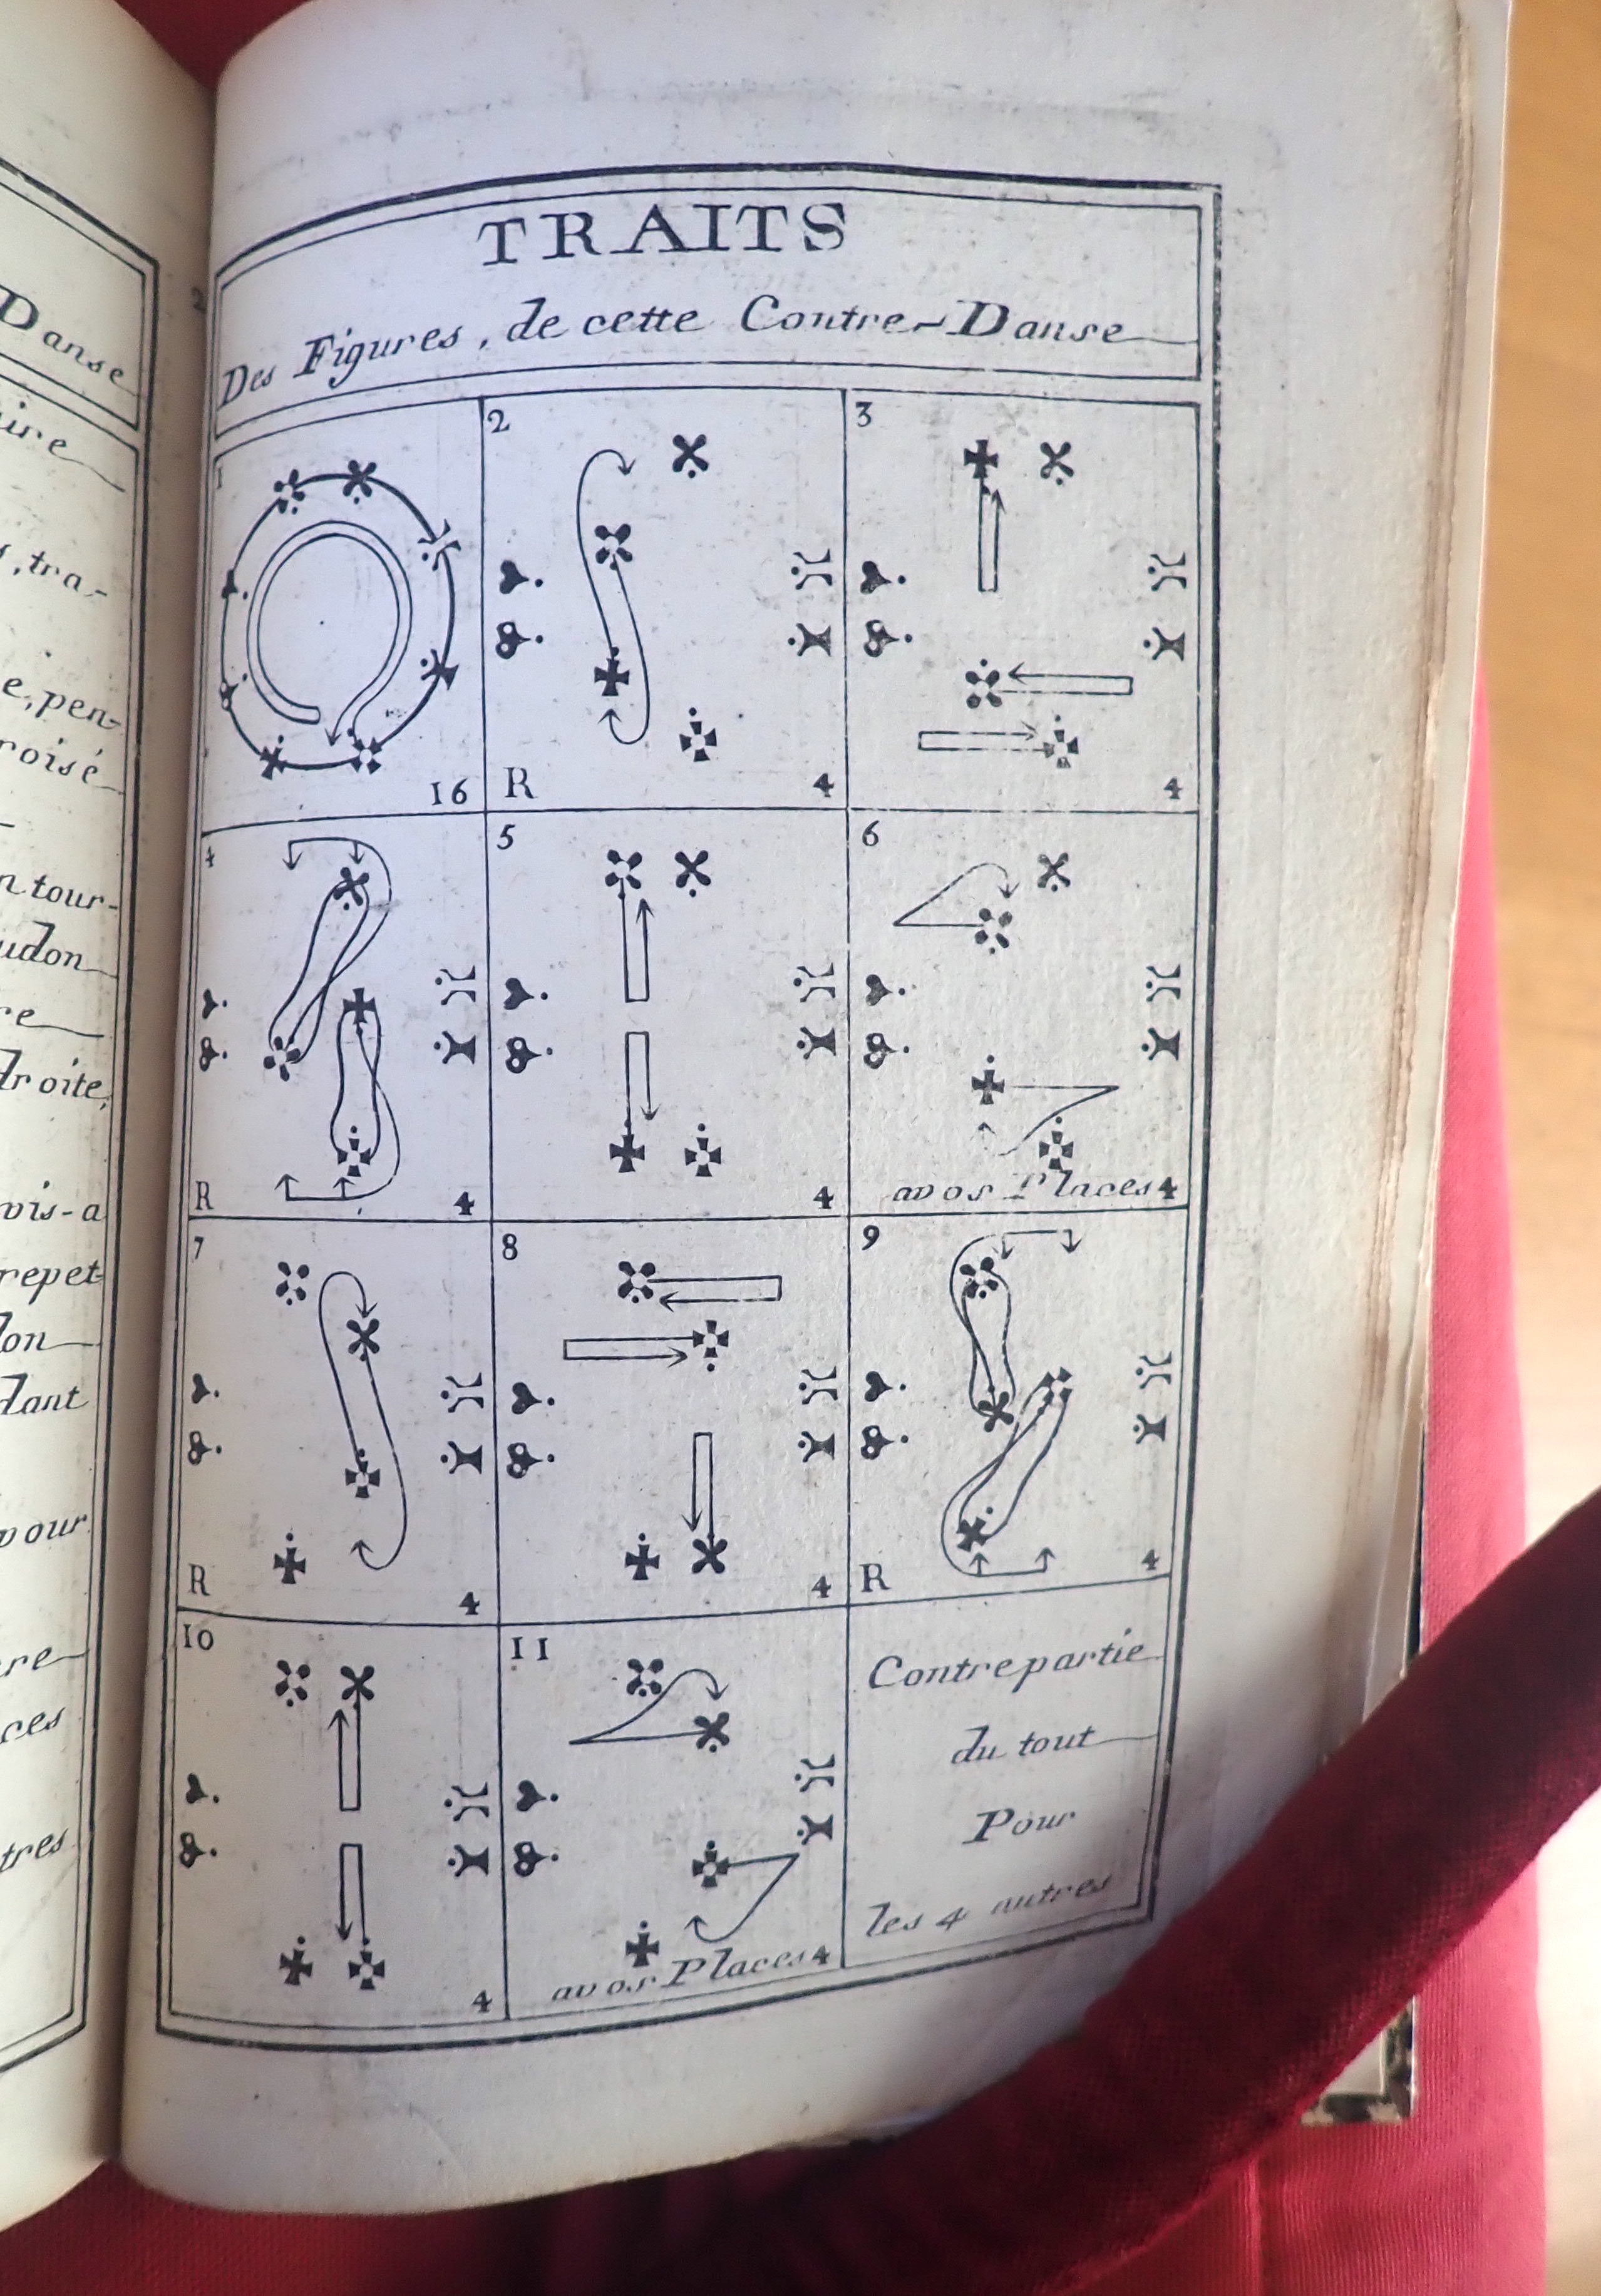 Danse
ire
, tra-
e, pen-
roisé
n tour-
udon
re
droite,
vis-a
repet-
lon
dant
pour
re
ces
tres
TRAITS
Des Figures, de cette Contre-Danse
1
16
2
R
4
3
4
4
R
4
5
4
6
avos Places 4
7
R
4
8
4
9
R
4
10
4
11
avos Places 4
Contrepartie
du tout
Pour
les 4 autres